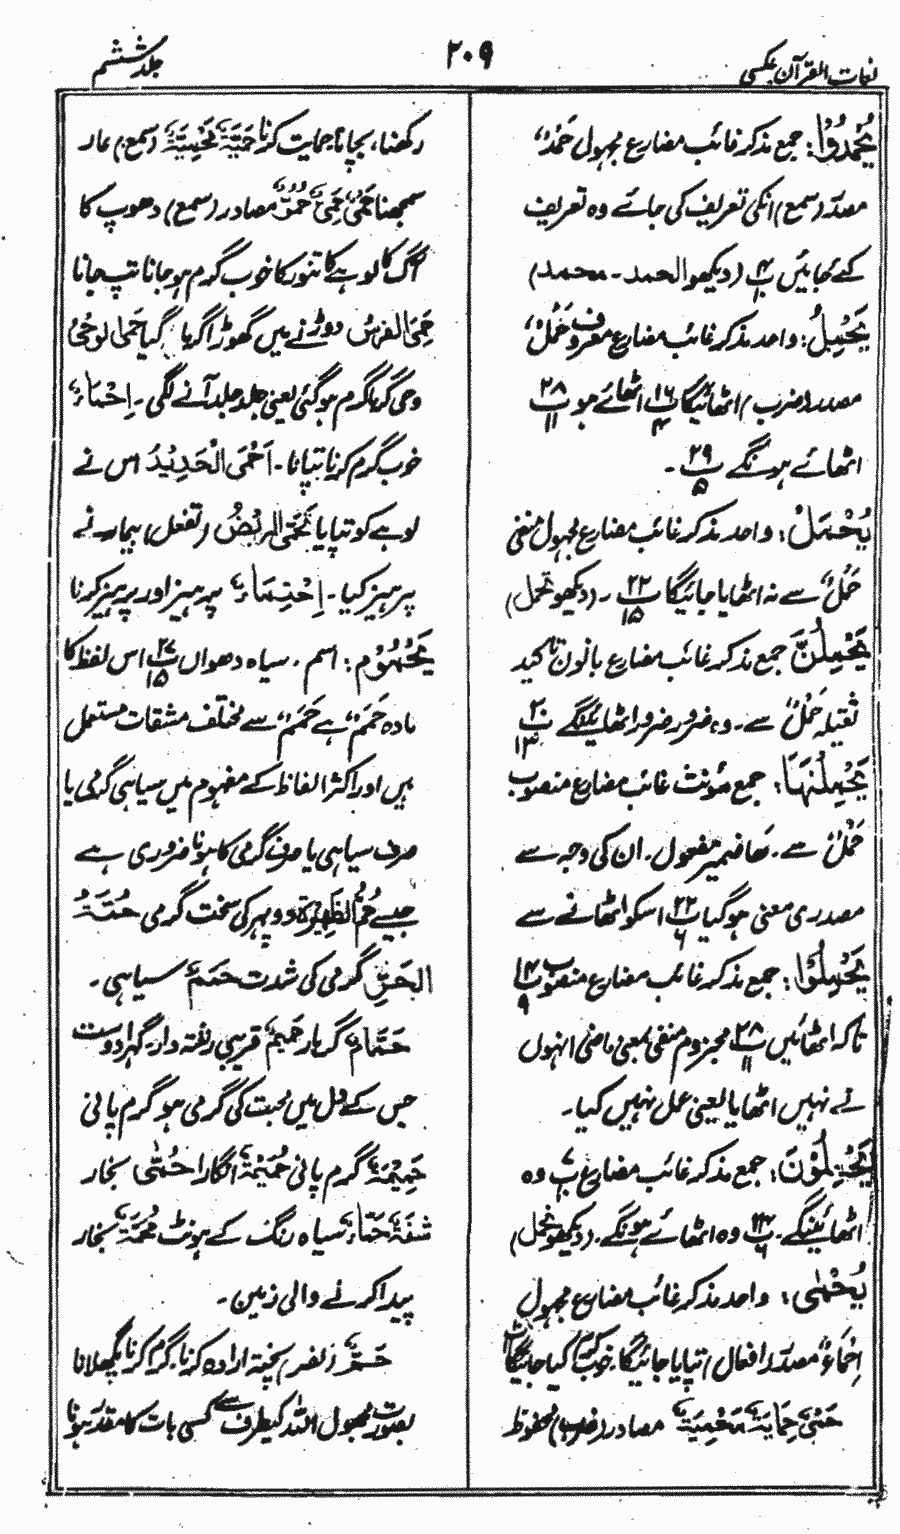 لغات القرآن عکسی
۲۰۹
جلد ششم
يُحْمَدُوْا: جمع مذکر غائب مضارع مجہول حَمْدٌ
مصدر (سمع) انکی تعریف کی جائے وہ تعریف
کئے جائیں پ۴ (دیکھو الحمد۔ محمد)
يَحْمِلُ: واحد مذکر غائب مضارع معروف حَمْلٌ
مصدر (ضرب) اٹھائیگا پ۱۶ اٹھائے ہو پ۲۸
اٹھائے ہونگے پ۲۹ ۔
يُحْمَلْ: واحد مذکر غائب مضارع مجہول منفی
حَمْلٌ سے نہ اٹھایا جائیگا پ۲۲ ۔ (دیکھو تحمل)
يَحْمِلُنَّ جمع مذکر غائب مضارع بانون تاکید
ثقیلہ حَمْلٌ سے۔ وہ ضرور ضرور اٹھائینگے پ۲۰
يَحْمِلْنَهَا: جمع مؤنث غائب مضارع منصوب
حَمْلٌ سے۔ ھَا ضمیر مفعول۔ ان کی وجہ سے
مصدری معنی ہو گیا پ۲۲ اسکو اٹھانے سے
يَحْمِلُوْا: جمع مذکر غائب مضارع منصوب پ۱۴
تاکہ اٹھائیں پ۲۸ مجزوم منفی بمعنی ماضی انہوں
نے نہیں اٹھایا یعنی عمل نہیں کیا۔
يَحْمِلُوْنَ: جمع مذکر غائب مضارع پ۷ وہ
اٹھائینگے۔ پ۲۴ وہ اٹھائے ہونگے۔ (دیکھو تحمل)
يُحْمٰى: واحد مذکر غائب مضارع مجہول
اِحْمَاءٌ مصدر (افعال) تپایا جائیگا۔ خوب گرم کیا جائیگا
حَمْيٌ حِمَايَةٌ مَحْمِيَةٌ مصادر (ضرب) محفوظ
رکھنا، بچانا حمایت کرنا حَمِيَّةٌ مَحْمِيَةٌ (سمع) عار
سمجھنا حَمْيٌ حُمِيٌّ حُمُوٌّ مصادر (سمع) دھوپ کا
آگ کا لوہے کا تنور کا خوب گرم ہو جانا تپ جانا
حَمِيَ الفرسُ دوڑنے میں گھوڑا گرما گیا حَمٰى لوحُىٌ
وحی گرما گرم ہو گئی یعنی جلد جلد آنے لگی۔ اِحْمَاءٌ
خوب گرم کرنا تپانا۔ اَحْمَى الْحَدِيْدَ اس نے
لوہے کو تپایا تَحَمَّى الْمَرِيْضُ (تفعل) بیمار نے
پرہیز کیا۔ اِحْتِمَاءٌ پرہیز اور پرہیز کرنا
يَحْمُوْم: اسم۔ سیاہ دھواں پ۲۷ اس لفظ کا
مادہ حَمَمٌ ہے حَمَمٌ سے مختلف مشتقات مستعمل
ہیں اور اکثر الفاظ کے مفہوم میں سیاہی گرمی یا
صرف سیاہی یا صرف گرمی کا ہونا ضروری ہے
جیسے حُمُّ الظَّهِيْرَةِ دوپہر کی سخت گرمی حُمَّةُ
الْحَرِّ گرمی کی شدت حَمَمٌ سیاہی ۔
حَمَّامٌ گرما بار حَمِيْمٌ قریبی رشتہ دار۔ گہرا دوست
جس کے دل میں محبت کی گرمی ہو گرم پانی
حَمِيْمَةٌ گرم پانی حُمَيْمَةٌ انگارا حُمّٰى بخار
شَفَةٌ حَمَّاءُ سیاہ رنگ کے ہونٹ مُحَمَّةٌ بخار
پیدا کرنے والی زمین ۔
حَمٌّ (نصر) پختہ ارادہ کرنا۔ گرم کرنا پگھلانا
بصورت مجہول اللہ کیطرف سے کسی بات کا مقدر ہونا